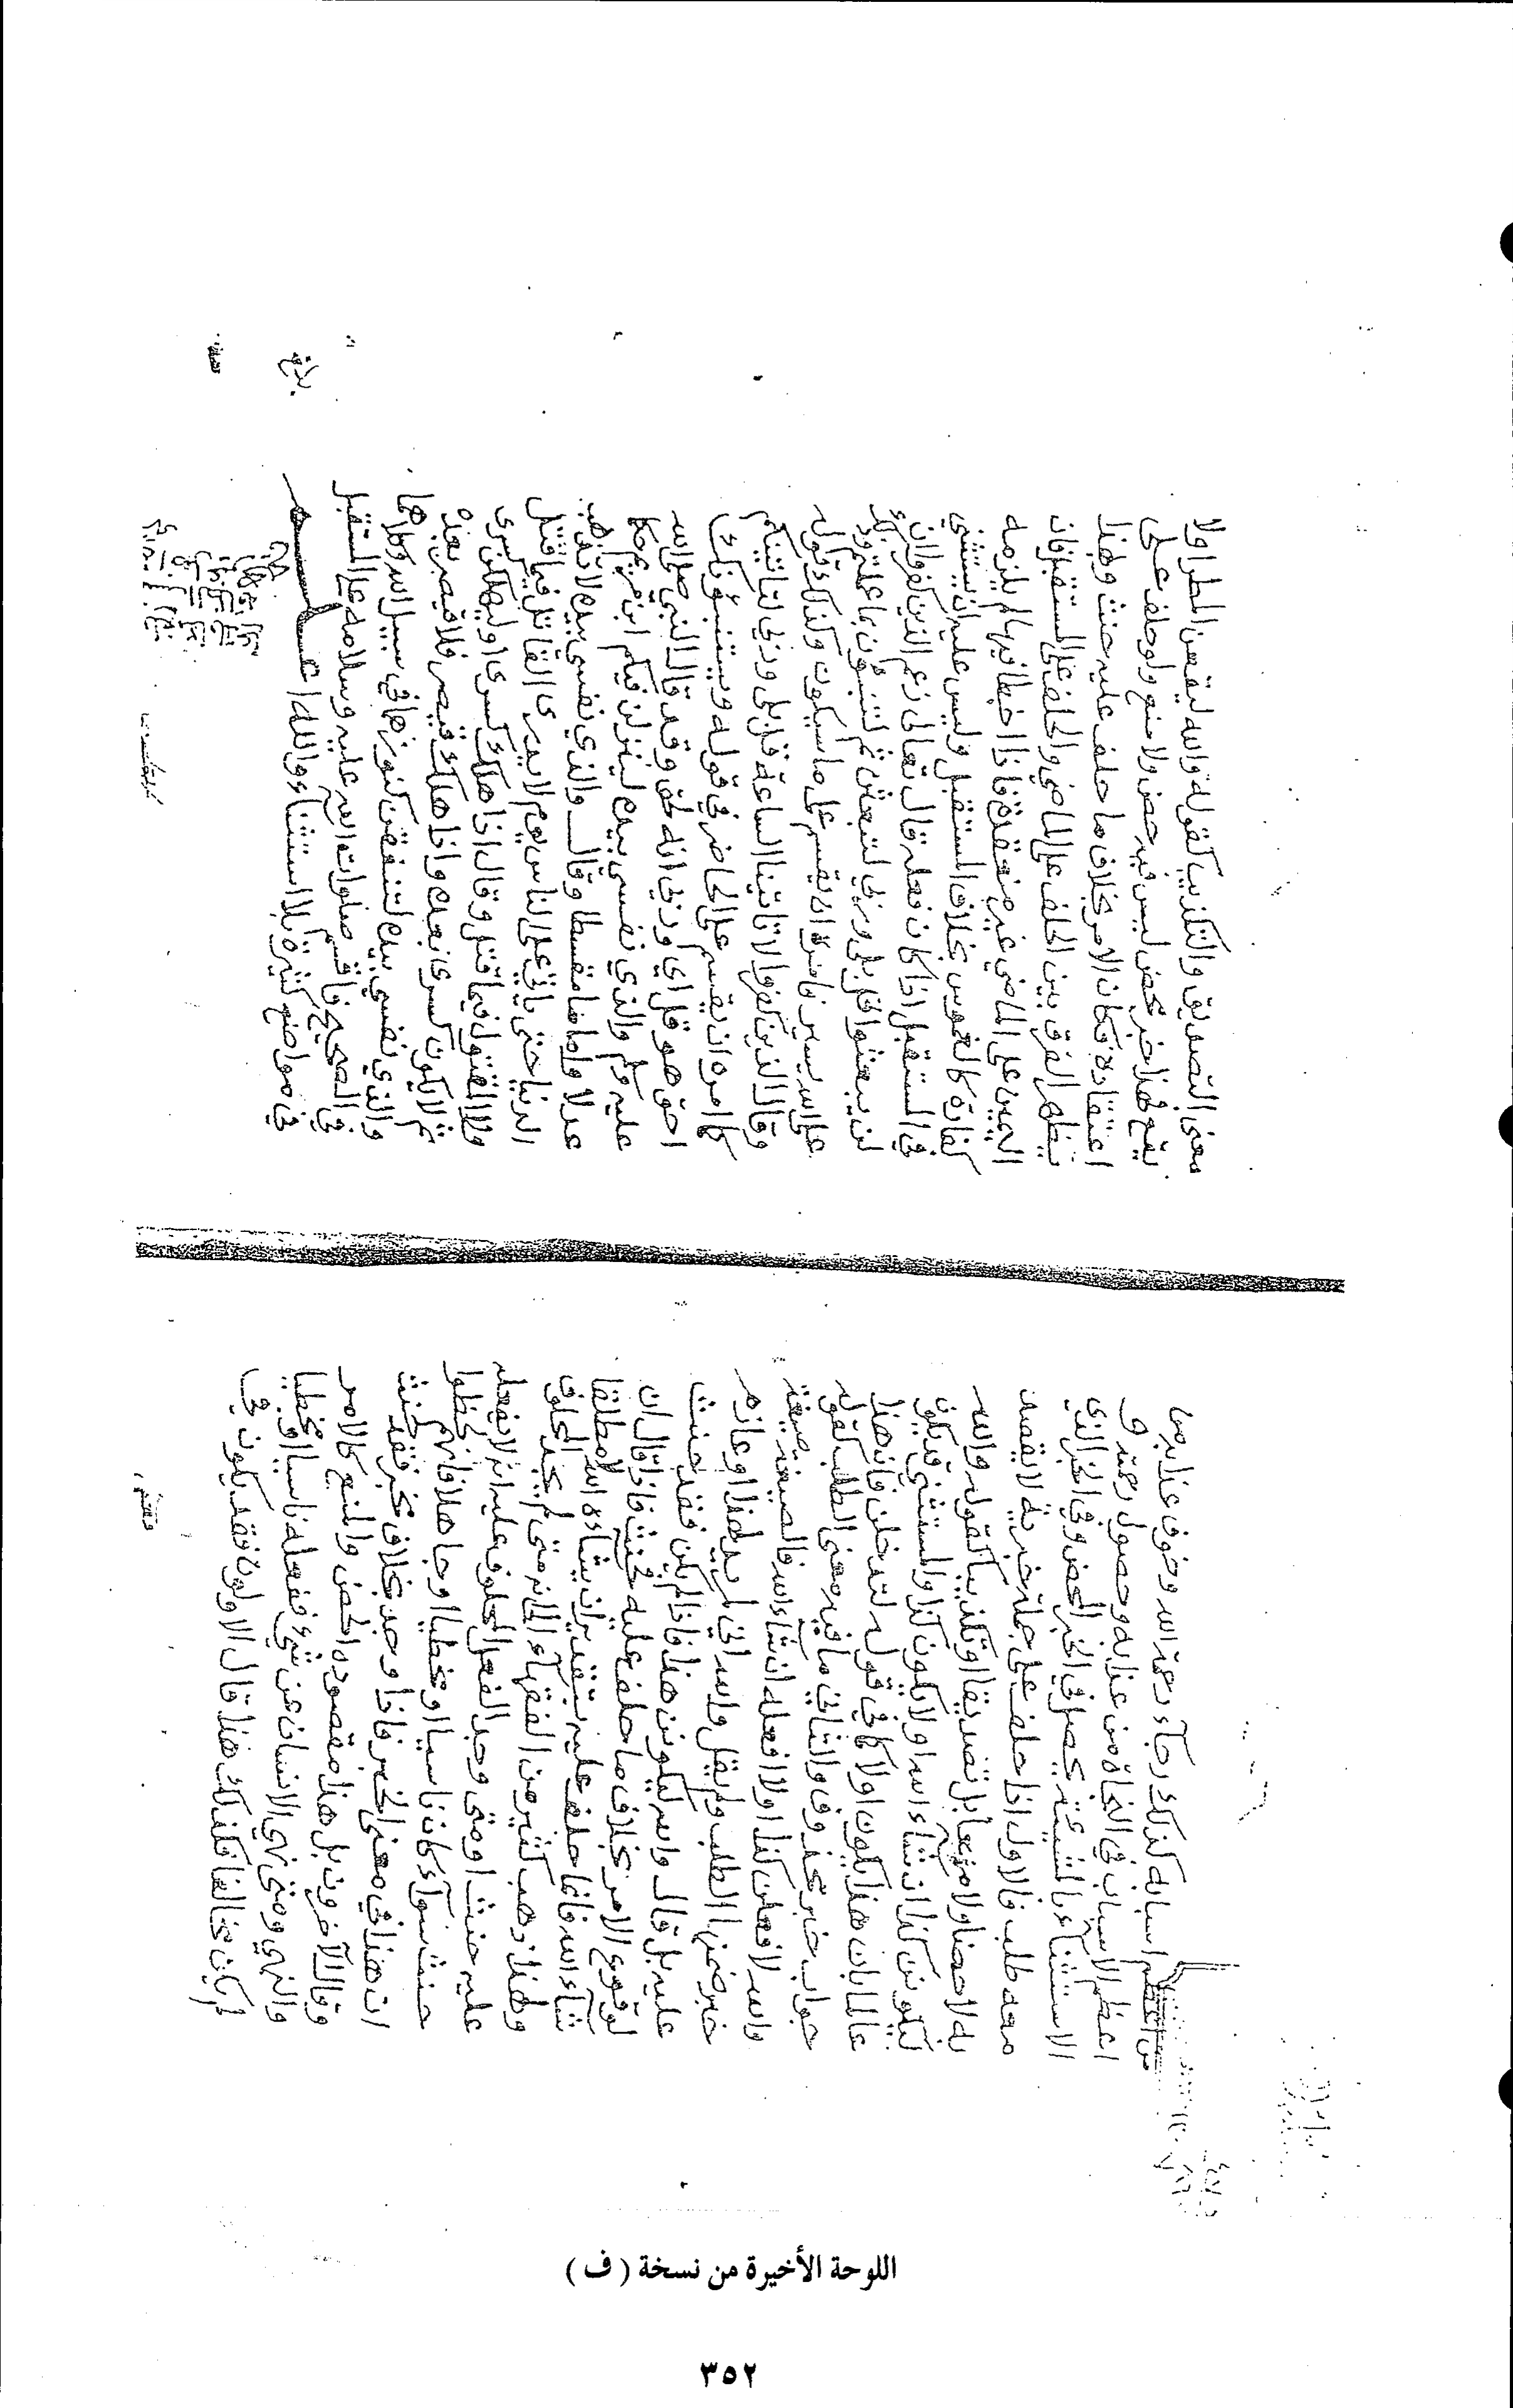 من اعظم اسبابه كذلك رجآء رحمة الله وخوف عذابه من
اعظم الاسباب في النجاة من عذابه وحصول رحمته و
الاستثنآء بالمشيئة يحصل في الخبر المحض وفي الخبر الذي
معه طلب فالاول اذا حلف على جملة خبرية لا يقصد
به لا حضا ولا منعا بل تصديقا او تكذيبا كقوله والله
ليكونن كذا ان شآء الله او لا يكون كذا والمستثني قد يكون
عالما بان هذا يكون او لا كما في قوله لتدخلن فان هذا
جواب خبر محذوف والثاني ما فيه معنى الطلب كقوله
والله لافعلن كذا او لا افعله ان شآء الله فالصيغة صيغة
خبر ضمنها الطلب ولم يقل والله اني لمريد هذا او عازم
عليه بل قال والله ليكونن هذا فاذا لم يكن فقد حنث
لوقوع الامر بخلاف ما حلف عليه فحنث فاذا قال ان
شآء الله فانما حلف عليه بتقدير ان يشآءه الله لا مطلقا
وهذا ذهب كثير من الفقهآء الى انه متى لم يجد المحلوف
عليه حنث او متى وجد الفعل المحلوف عليه انه لا يفعله
حنث سوآء كان ناسيا او مخطيا او جاهلا فانهم لحظوا
ان هذا في معنى الخبر فاذا وجد بخلاف مخبره فقد حنث
وقال الآخرون بل هذا مقصوده الحض والمنع كالامر
والنهي ومتى نهي الانسان عن شيء ففعله ناسيا او مخطيا
لم يكن مخالفا فكذلك هذا قال الاولون فقد يكون في
معنى التصديق والتكذيب كقوله والله ليقعن المطر او لا
يقع فهذا خبر محض ليس فيه حض ولا منع ولو حلف على
اعتقاده فكان الامر بخلاف ما حلف عليه حنث وبهذا
يظهر الفرق بين الحلف على الماضي والحلف على المستقبل فان
اليمين على الماضي غير منعقدة فاذا اخطا فيها لم يلزمه
كفارة كالغموس بخلاف المستقبل وليس عليه ان يستثني
في المستقبل اذا كان فعله قال تعالى زعم الذين كفروا ان
لن يبعثوا قل بلى وربي لتبعثن ثم لتنبؤن بما عملتم وذلك
على الله يسير فامره ان يقسم على ما سيكون وكذلك قوله
وقال الذين كفروا لا تاتينا الساعة قل بلى وربي لتاتينكم
كما امره ان يقسم على الحاضر في قوله ويستنبؤنك
احق هو قل اي وربي انه لحق وقد قال النبي صلى الله
عليه وسلم والذي نفسي بيده لينزلن فيكم ابن مريم حكما
عدلا واماما مقسطا وقال والذي نفسي بيده لا تذهب
الدنيا حتى ياتي على الناس يوم لا يدرى القاتل فيما قتل
ولا المقتول فيما قتل وقال اذا هلك كسرى او ليهلكن كسرى
ثم لا يكون كسرى بعده واذا هلك قيصر فلا قيصر بعده
والذي نفسي بيده لتنفقن كنوزهما في سبيل الله وكلاهما
في الصحيح فاقسم صلوات الله عليه وسلامه على المستقبل
في مواضع كثيرة بلا استثناء والله اعلم
بلغ
اللوحة الأخيرة من نسخة ( ف )
٣٥٢